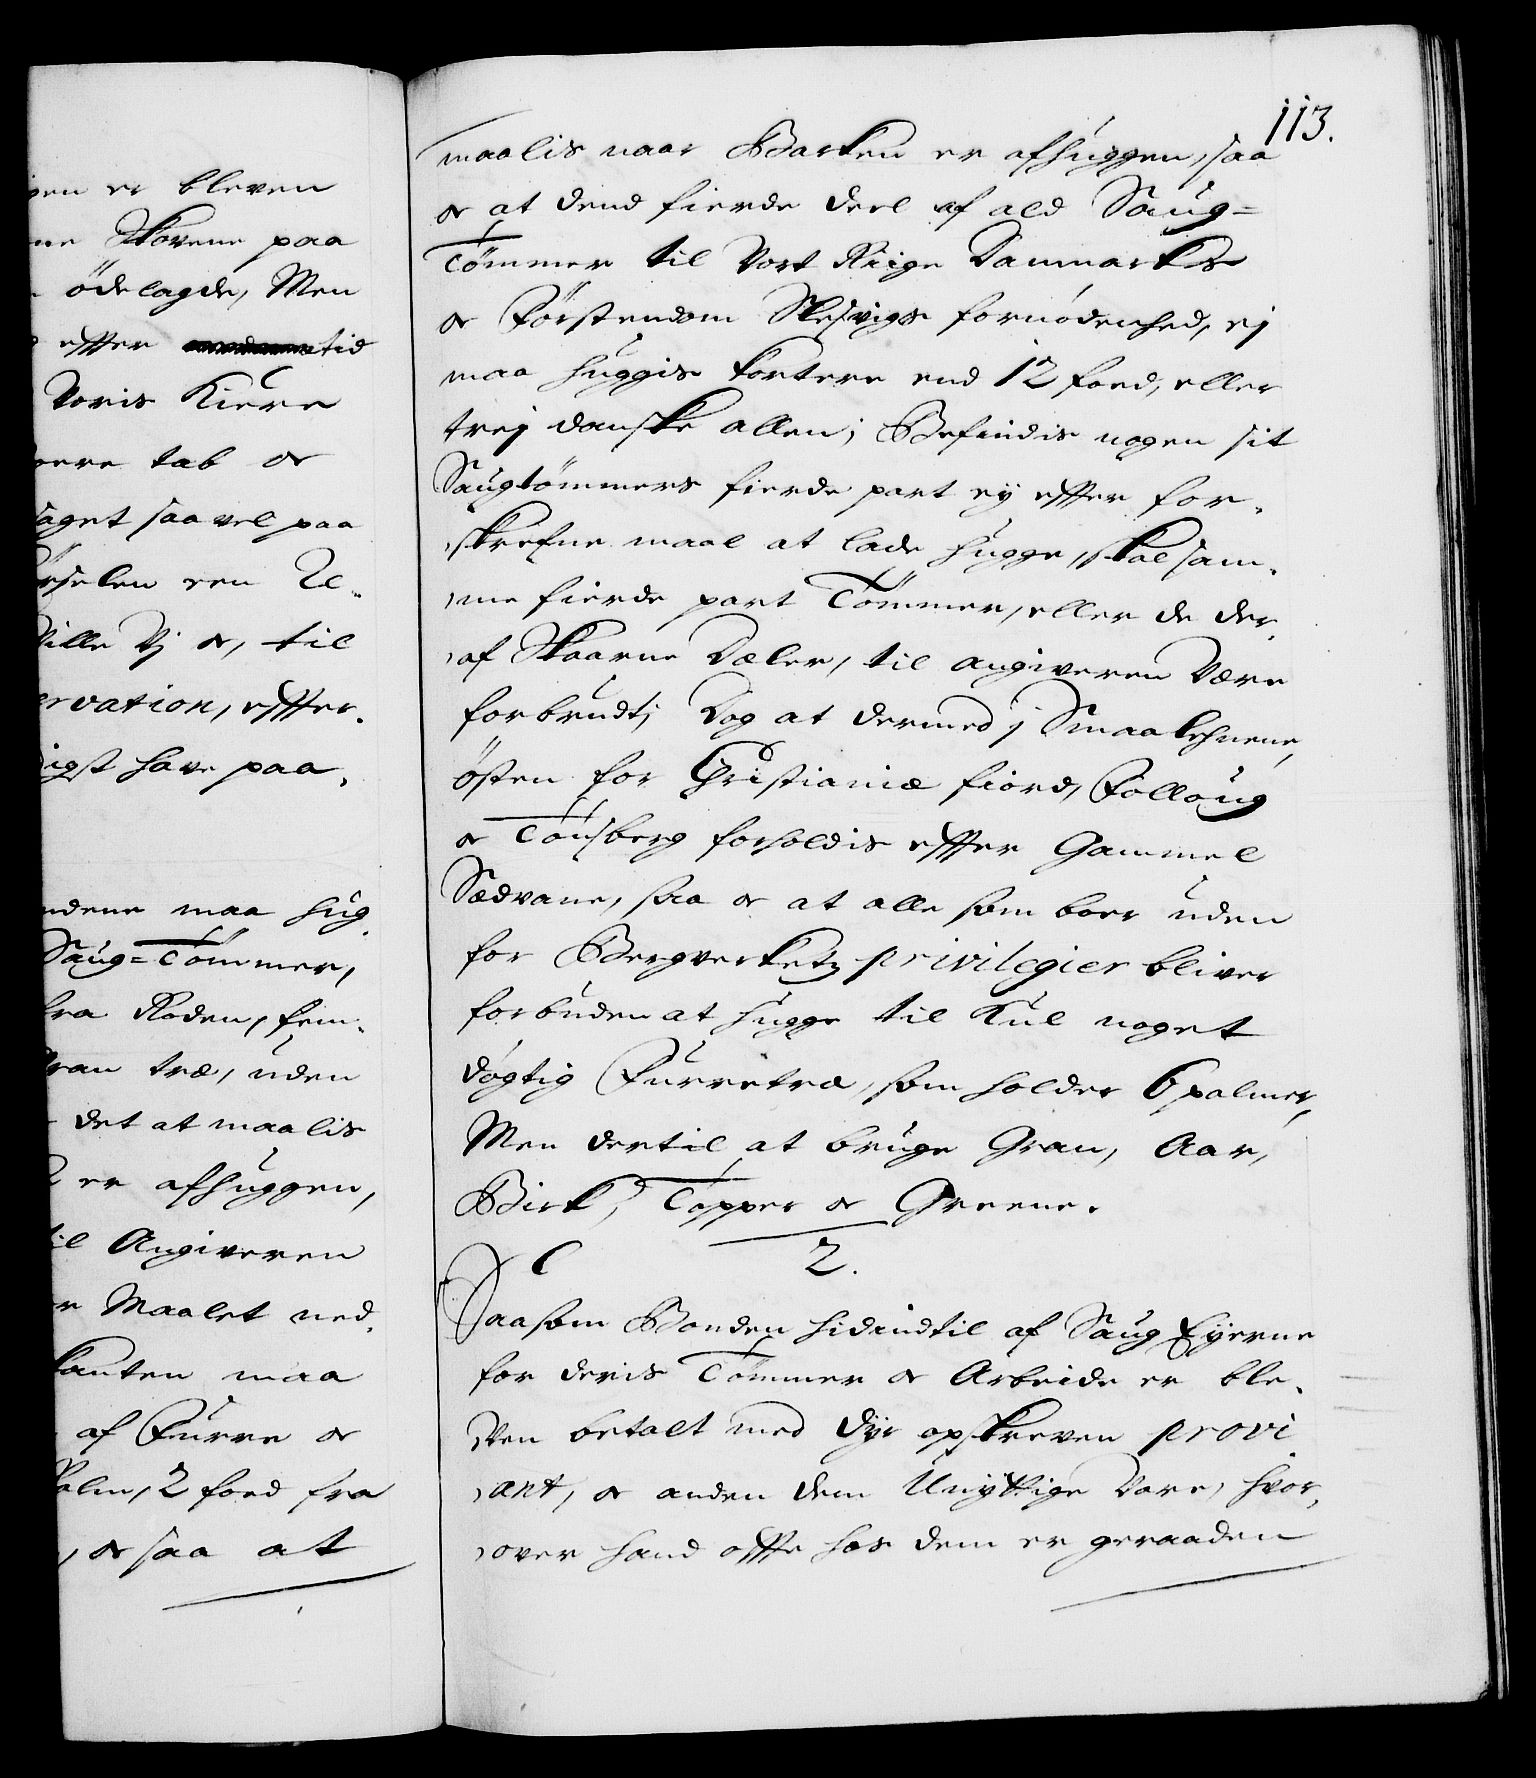 gen er bleven
ne Skovene paa
ödelagde, Men
effter tid
Voris Kiere
tab oc
taget saa vel paa
selen een
Ville Vj oc, til
ervation, effter¬
digst have paa¬
ndene maa hug¬
Saug=Tömmer,
fra Roden, fem¬
Gran træ, uden
det at maalis
er afhuggen,
til Angiveren
Maalet ned¬
kanten maa
af Furre oc
Palm, 2 foed fra
, oc saa at
113.
maalis naar Barken er afhuggen, saa
oc at dend fierde deel af ald Saug=
Tömmer til Vort Riige Danmarks
oc Förstendom Slesvigs fornödenhed, ej
maa huggis kortere end 12 foed, eller
trej danske allen; Befindis nogen sit
Saugtömmers fierde part ey effter for¬
skrefne maal at lade hugge, skal sam¬
me fierde part Tömmer, eller de der¬
af Skaarne Dæler, til angiveren Være
forbrudt; Dog at dermed j Smaalehnene,
östen for Christianiæ fiord, Follong
oc Tönsberg forholdis effter Gammel
Sædvane, saa oc at alle som boer uden
for Bergverketz privilegier bliver
forbuden at hugge til Kul noget
dögtig Furretræ, som holder 6 palmer,
Men dertil at bruge Gran, Aar,
Birk, Topper oc Greene.
2.
Saasom Bonden hidindtil af Saug Eyerne
for deris Tömmer oc Arbeide er ble¬
ven betalt med dyr opskreven provi
ant, oc anden dem Unyttige Vare, hvor¬
over hand offte hos dem er geraaden